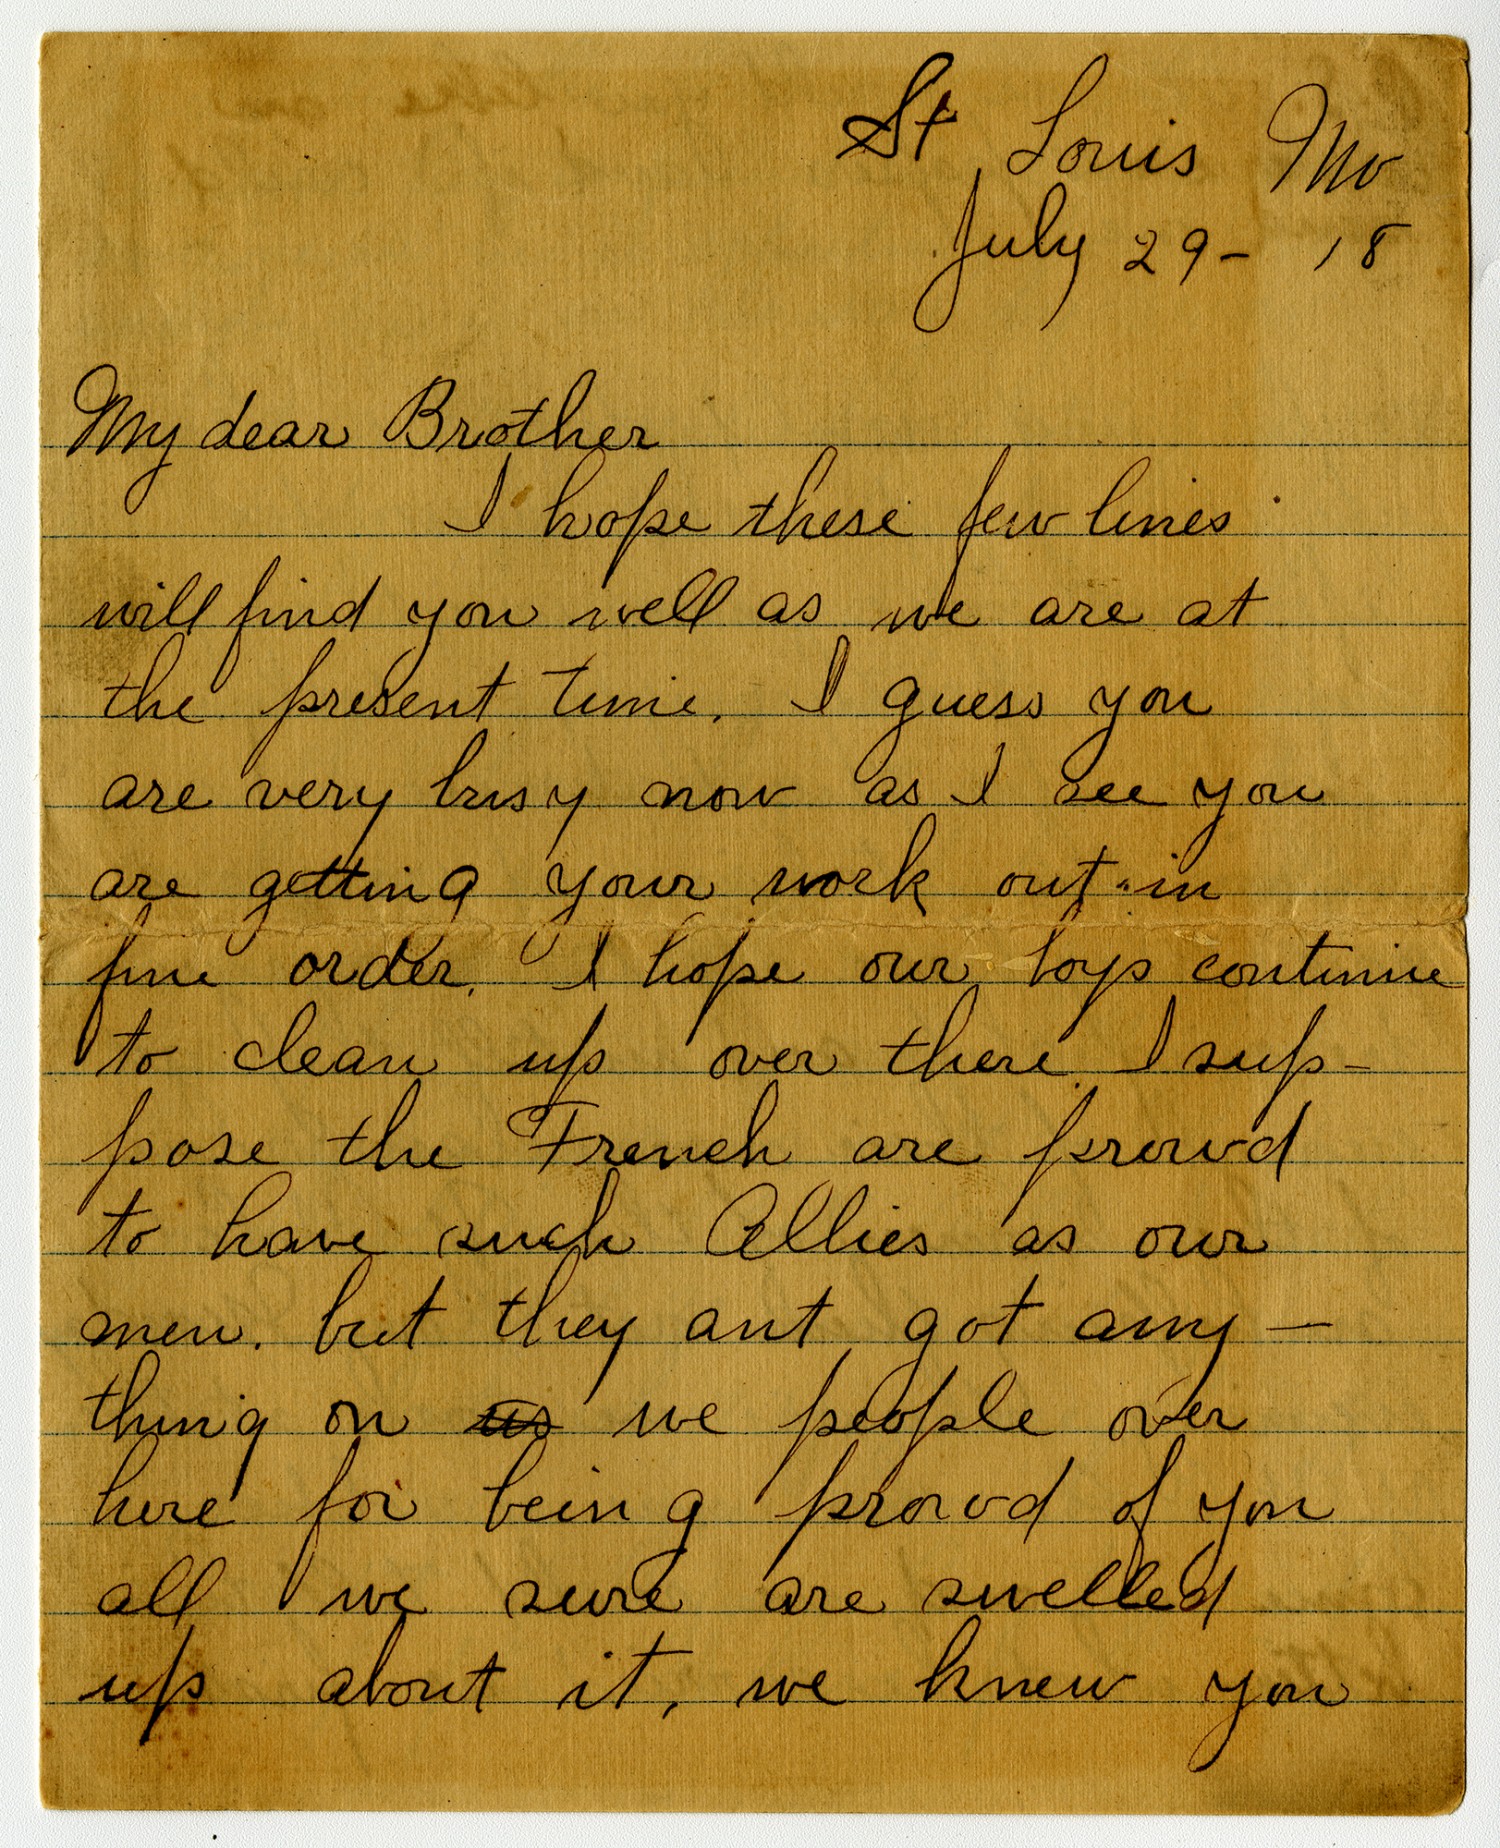 St Louis Mo
July 29 - 18
My dear Brother
I hope these few lines
will find you well as we are at
the present time. I guess you
are very busy now as I see you
are getting your work out in
fine order. I hope our boys continue
to clean up over there I sup-
pose the French are prowd
to have such Allies as our
men. but they ant got any-
thing on us we people over
here for being prowd of you
all we sure are swelled
up about it, we knew you